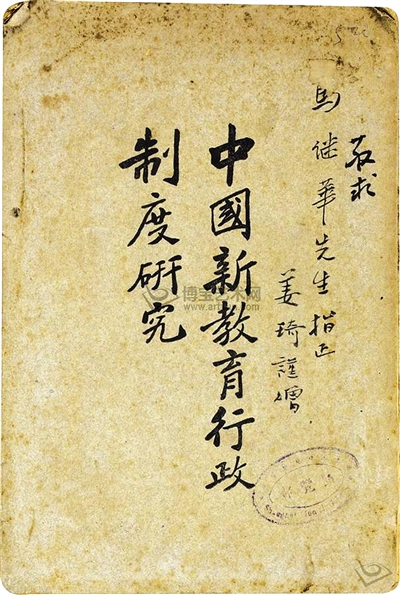 敬求
馬継華先生指正
姜琦謹贈
中國新教育行政
制度研究
博宝艺术网